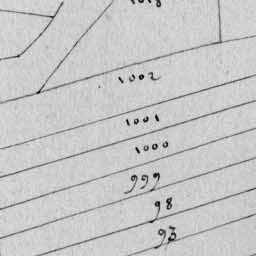 1018
1002
1001
1000
999
98
93